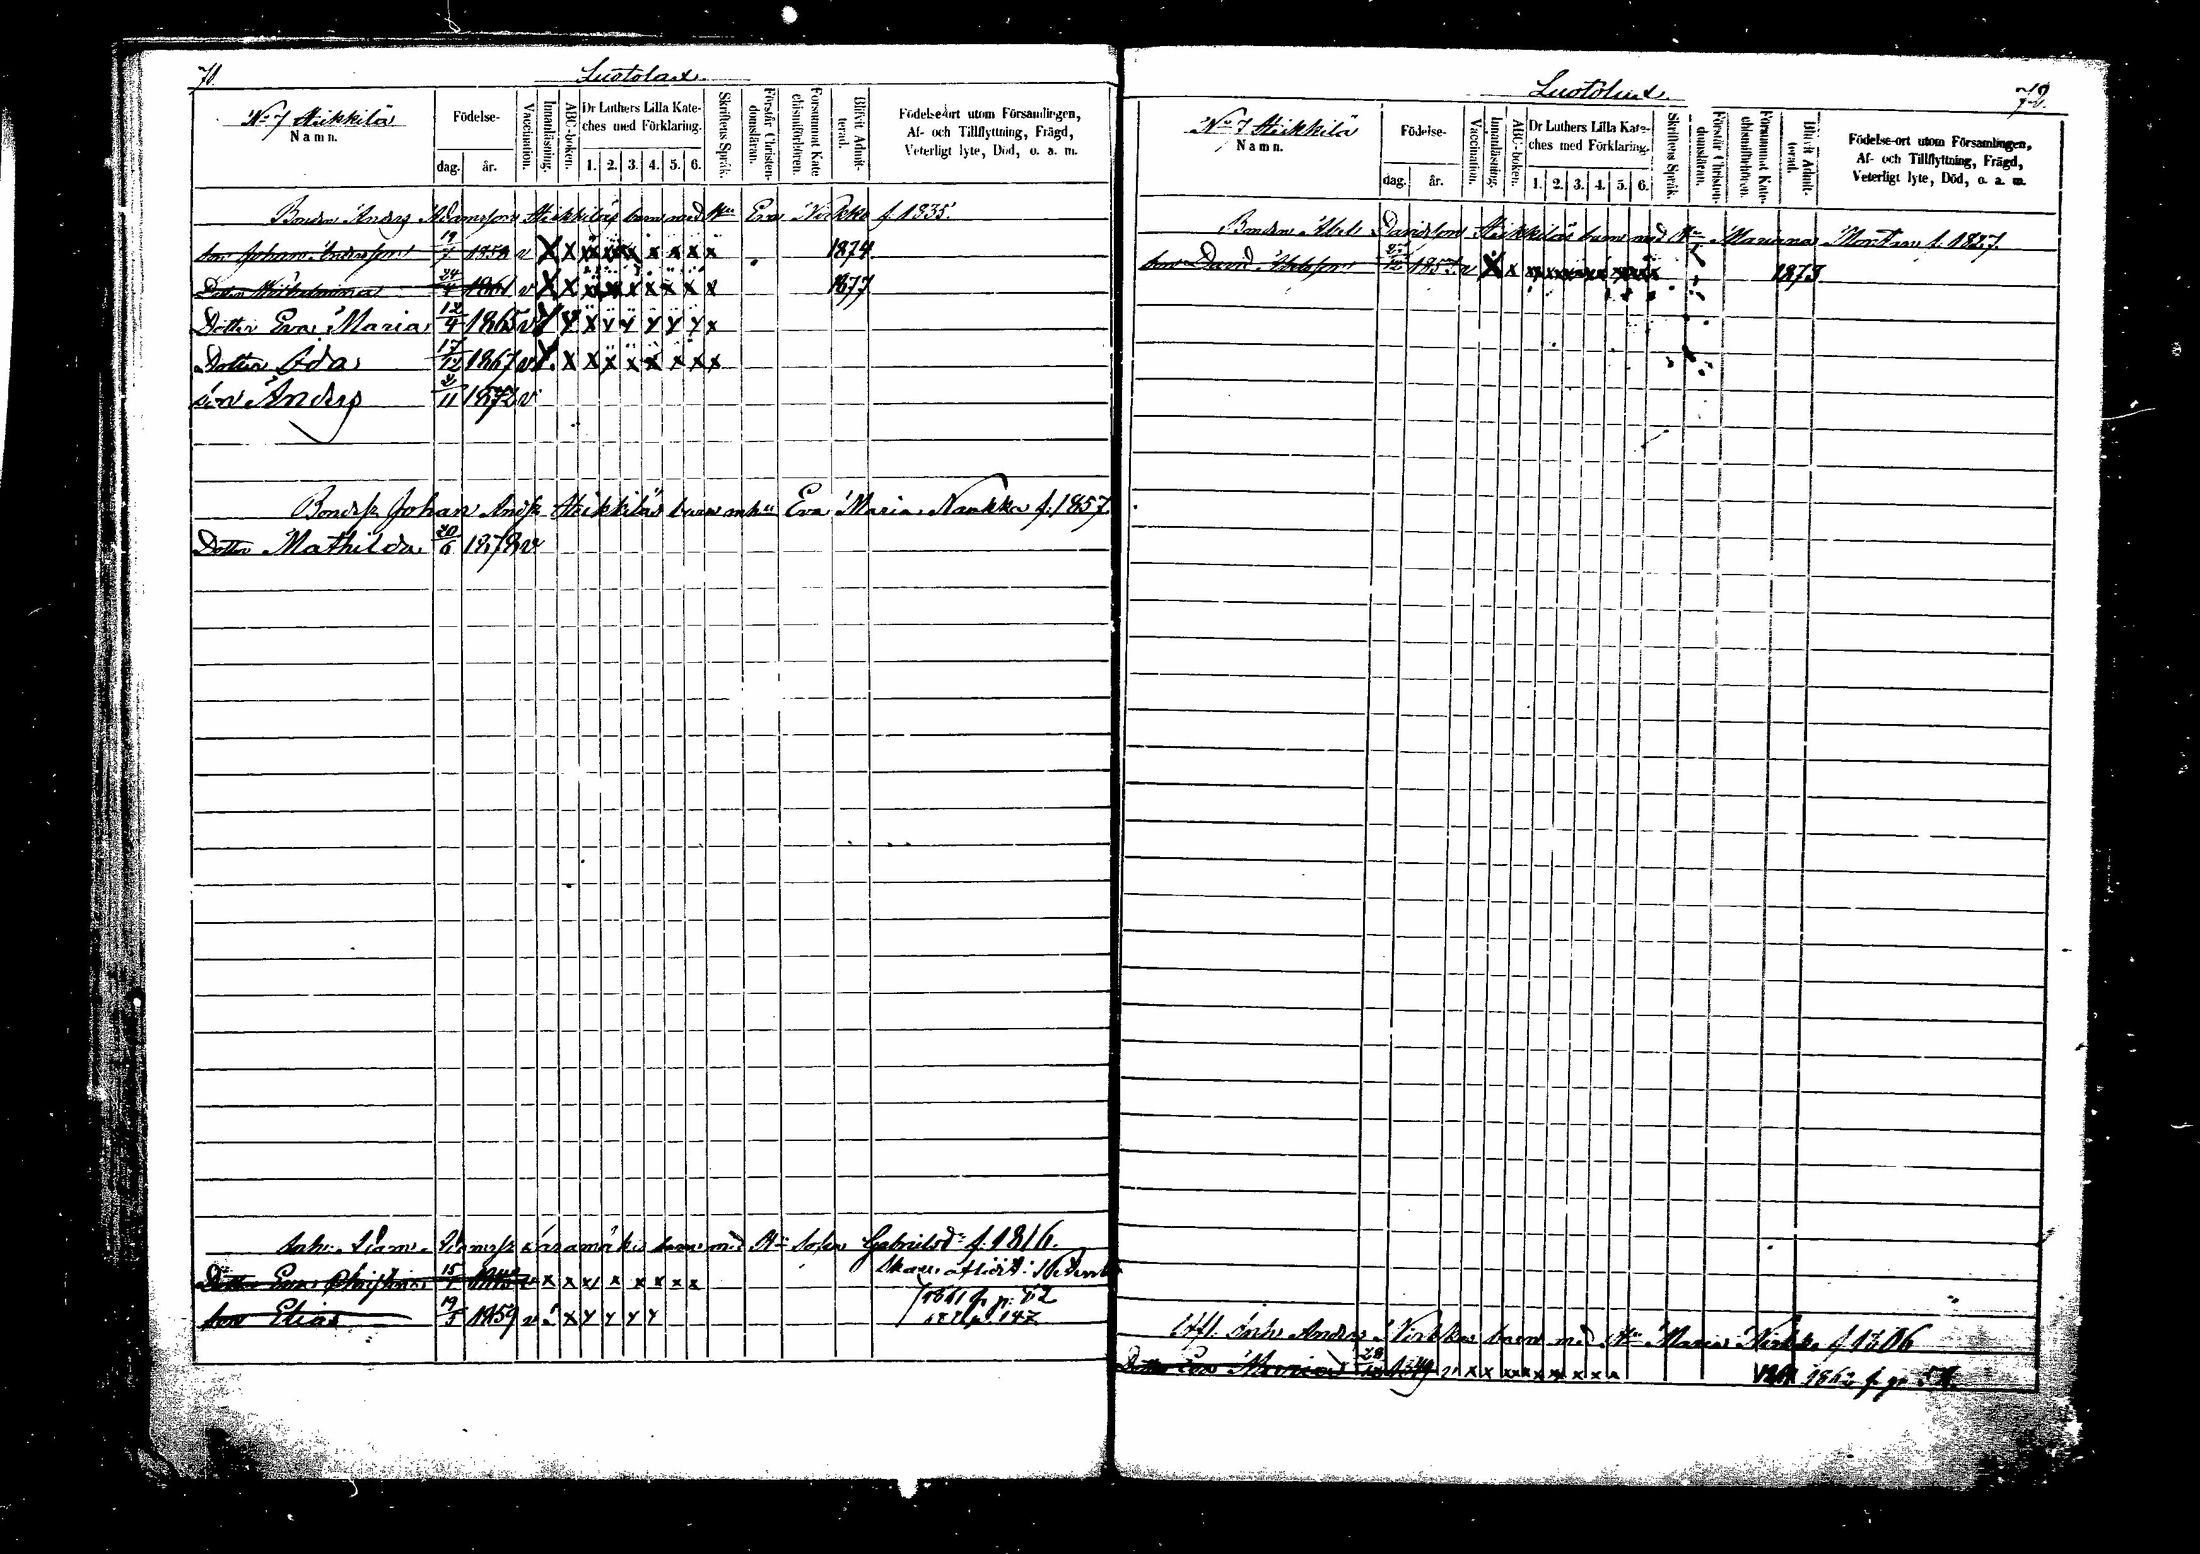 71.
Luotolax
No 7 Heikkilä
Namn.
Födelse-
dag.
år.
Vaccination.
Innanläsning.
ABC-boken.
Dr Luthers Lilla Kate-
ches med Förklaring.
1. 2. 3. 4. 5. 6.
Skriftens Språk.
Förstår Christen-
domsläran.
Försummat Kate
chismiförhören.
Blivit Admit-
terad.
Födelse-ort utom Församlingen,
Af- och Tillflyttning, Frägd,
Veterligt lyte, Död, o. a. m.
Bonden Anders Adamsson Heikkiläs barn med Hu Eva Nokka f. 1835.
Son Johan Andersson 19/7 1858 v X X X X X X X X X 1874
Dotter Wilhelmina 24/4 1861 v X X X X X X X X X 1877
Dotter Eva Maria 12/4 1865 v
Dotter Ada 17/12 1867 v X X X X X X X X X
son Anders 2/11 1872 v
Bondes. Johan Andss. Heikkiläs barn m hu Eva Maria Naukka f. 1857
Dotter Mathilda 20/6 1878 v
barn med Hu Sofia Gabrielsdr f. 1816.
Dotter Eva Christina 15/1 v x x x x x x x x
Son Elias 19/5 1859 v
p. 147
72.
Luotolax
No 7 Heikkilä
Namn.
Födelse-
dag.
år.
Vaccination.
Innanläsning.
ABC-boken.
Dr Luthers Lilla Kate-
ches med Förklaring.
1. 2. 3. 4. 5. 6.
Skriftens Språk.
Förstår Christen-
domsläran.
Försummat Kate-
chismiförhören.
Blivit Admit-
terad.
Födelse-ort utom Församlingen,
Af- och Tillflyttning, Frägd,
Veterligt lyte, Död, o. a. m.
Bonden Abel Davidsson Heikkiläs barn med Hu Mariana f. 1827.
Son David Abelsson v X x 1873
Inh. Anders barn med Hu Maria f. 1806
Dotter Eva Maria 1849 v x x x x x x x x 1862